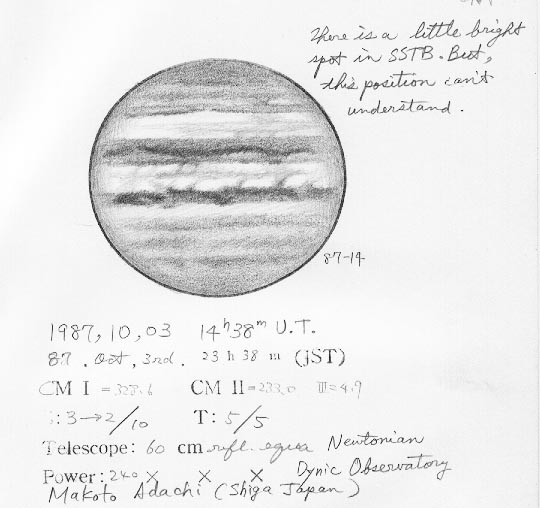 There is a little bright
spot in SSTB. But,
this position can't
understand.
87-14
1987, 10, 03 14h38m U.T.
87. Oct, 3rd. 23 h 38 m (JST)
CM I = 323.6 CM II = 233.0 III = 4.9
: 3→2/10 T: 5/5
Telescope: 60 cm refl. Newtonian
Power: 240 × × × Dynic Observatory
Makoto Adachi (Shiga Japan)